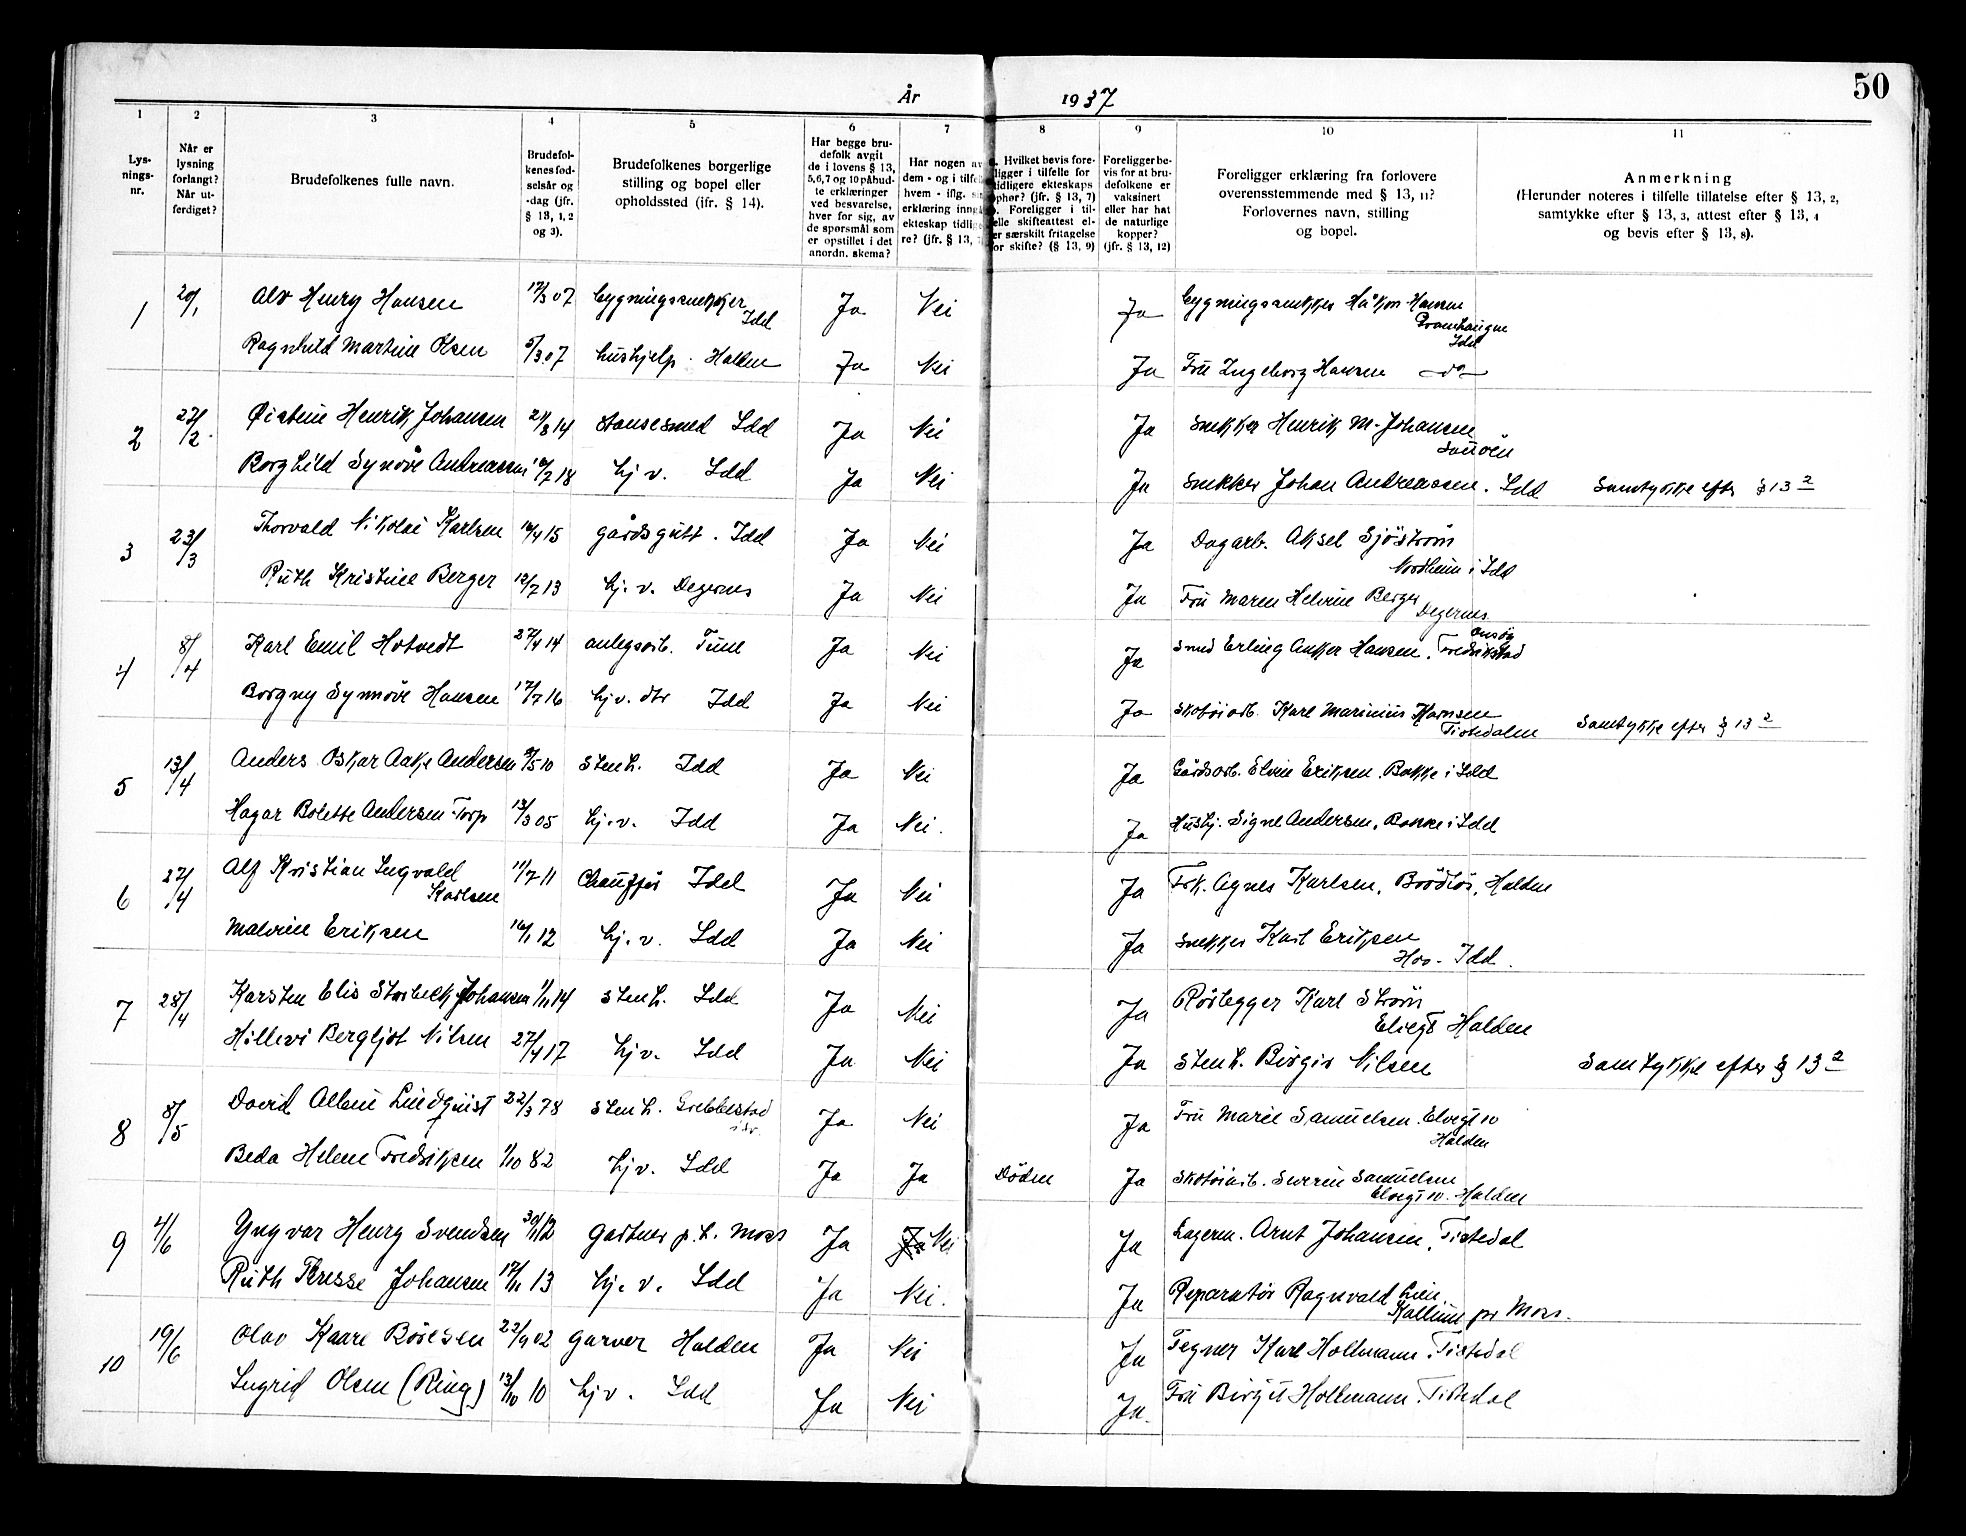 50
År 1937
1 2 3 4 5 6 7 8 9 10 11
Lys-
nings-
nr.
Når er
lysning
forlangt?
Når ut-
ferdiget?
Brudefolkenes fulle navn.
Brudefol-
kenes fød-
selsår og
-dag (jfr.
§ 13, 1, 2
og 3).
Brudefolkenes borgerlige
stilling og bopel eller
opholdssted (ifr. § 14).
Har begge bru-
defolk avgit
de i lovens § 13,
5,6,7 og 10 påbud-
te erklæringer
ved besvarelse,
hver for sig, av
de spørsmål som
er opstillet i det
anordn. skema?
Har nogen av
dem - og i tilfe
hvem - iflg.
erklæring inng
ekteskap tidlig
re? (jfr. § 13,
Hvilket bevis fore-
ligger i tilfelle for
tidligere ekteskaps
ophør? (jfr. § 13, 7)
Foreligger i til-
elle skifteattest el-
er særskilt fritagelse
for skifte? (§ 13, 9)
Foreligger be-
vis for at bru-
defolkene er
vaksinert
eller har hat
de naturlige
kopper?
(jfr. § 13, 12)
Foreligger erklæring fra forlovere
overensstemmende med § 13, 11?
Forlovernes navn, stilling
og bopel.
Anmerkning
(Herunder noteres i tilfelle tillatelse efter § 13, 2,
samtykke efter § 13, 3, attest efter § 13, 4
og bevis efter § 13, 8).
1 20/1 Alv Henry Hansen 17/3 07 bygningssnekker Idd Ja Nei Ja bygningssnekker Håkon Hansen
Idd
Ragnhild Martine Olsen 5/3 07 hushjelp. Halden Ja Nei Ja Fru Ingeborg Hansen —do—
2 27/2 Øistein Henrik Johansen 21/8 14 stansesmed Idd Ja Nei Ja snekker Henrik M. Johansen
Sauøen
Borghild Synøve Andreassen /7 18 hj v. Idd Ja Nei Ja snekker Johan Andreassen. Idd Samtykke efter § 13 2
3 23/3 Thorvald Nikolai Karlsen /4 15 gårdsgutt. Idd Ja Nei Ja Dagarb. Aksel Sjöström
Nordheim i Idd
Ruth Kristine Berger 12/7 13 hj. v. Degernes Ja Nei Ja Fru Maren Helvine Berger
Degernes
4 8/4 Karl Emil Hotvedt 27/4 14 anlegsarb. Tune Ja Nei Ja Smed Erling Anker Hansen. Fredrikstad
Onsøy
Borgny Synnøve Hansen 17/7 16 hj v. dtr Idd Ja Nei Ja Skotøiarb. Karl Marinius Hansen
Tistedalen Samtykke efter § 13 2
5 13/4 Anders Oskar Aake Andersen /5 10 stenh. Idd Ja Nei Ja Gårdsarb. Elvin Eriksen. Bakke i Idd
Hagar Bolette Andersen-Torp 13/3 05 hj. v. Idd Ja Nei. Ja Hushj. Signe Andersen, Bakke i Idd
6 27/4 Alf Kristian Ingvald
Karlsen 11/7 11 Chauffør Idd Ja Nei Ja Frk. Agnes Karlsen, Brødløs, Halden
Malvine Eriksen 16/1 12 hj. v. Idd Ja Nei Ja snekker Karl Eriksen
Hov - Idd.
7 28/4 Karsten Elis Starbeck Johansen 1/11 14 stenh. Idd Ja Nei Ja Rørlegger Karl Strøm
Elvegt Halden
Hillevi Bergljot Nilsen 27/4 17 hj v. Idd Ja Nei Ja Stenh. Birger Nilsen Samtykke efter § 13 2
8 8/5 David Albin Lindquist 22/3 78 stenh. Grebbestad
i Sv. Ja Nei Ja Fru Marie Samuelsen. Elvegt 10
Halden
Beda Helene Fredriksen 1/10 82 hj v. Idd Ja Ja Døden Ja Skotøiarb. Severin Samuelsen
Elvegt 10. Halden
9 4/6 Yngvar Henry Svendsen 30/ 12 Gartner p. t. Moss Ja Ja Nei Ja Lagerm. Arnt Johansen, Tistedal
Ruth Terese Johansen 17/11 13 hj. v. Idd Ja Nei. Ja Reparatør Ragnvald Lien
Kallum pr Moss.
10 19/6 Olav Kaare Børesen 22/9 02 garver Halden Ja Nei Ja Tegner Karl Hollmann. Tistedal
Ingrid Olsen (Ring) 13/10 10 hj v. Idd Ja Nei Ja. Fru Birgit Hollmann. Tistedal